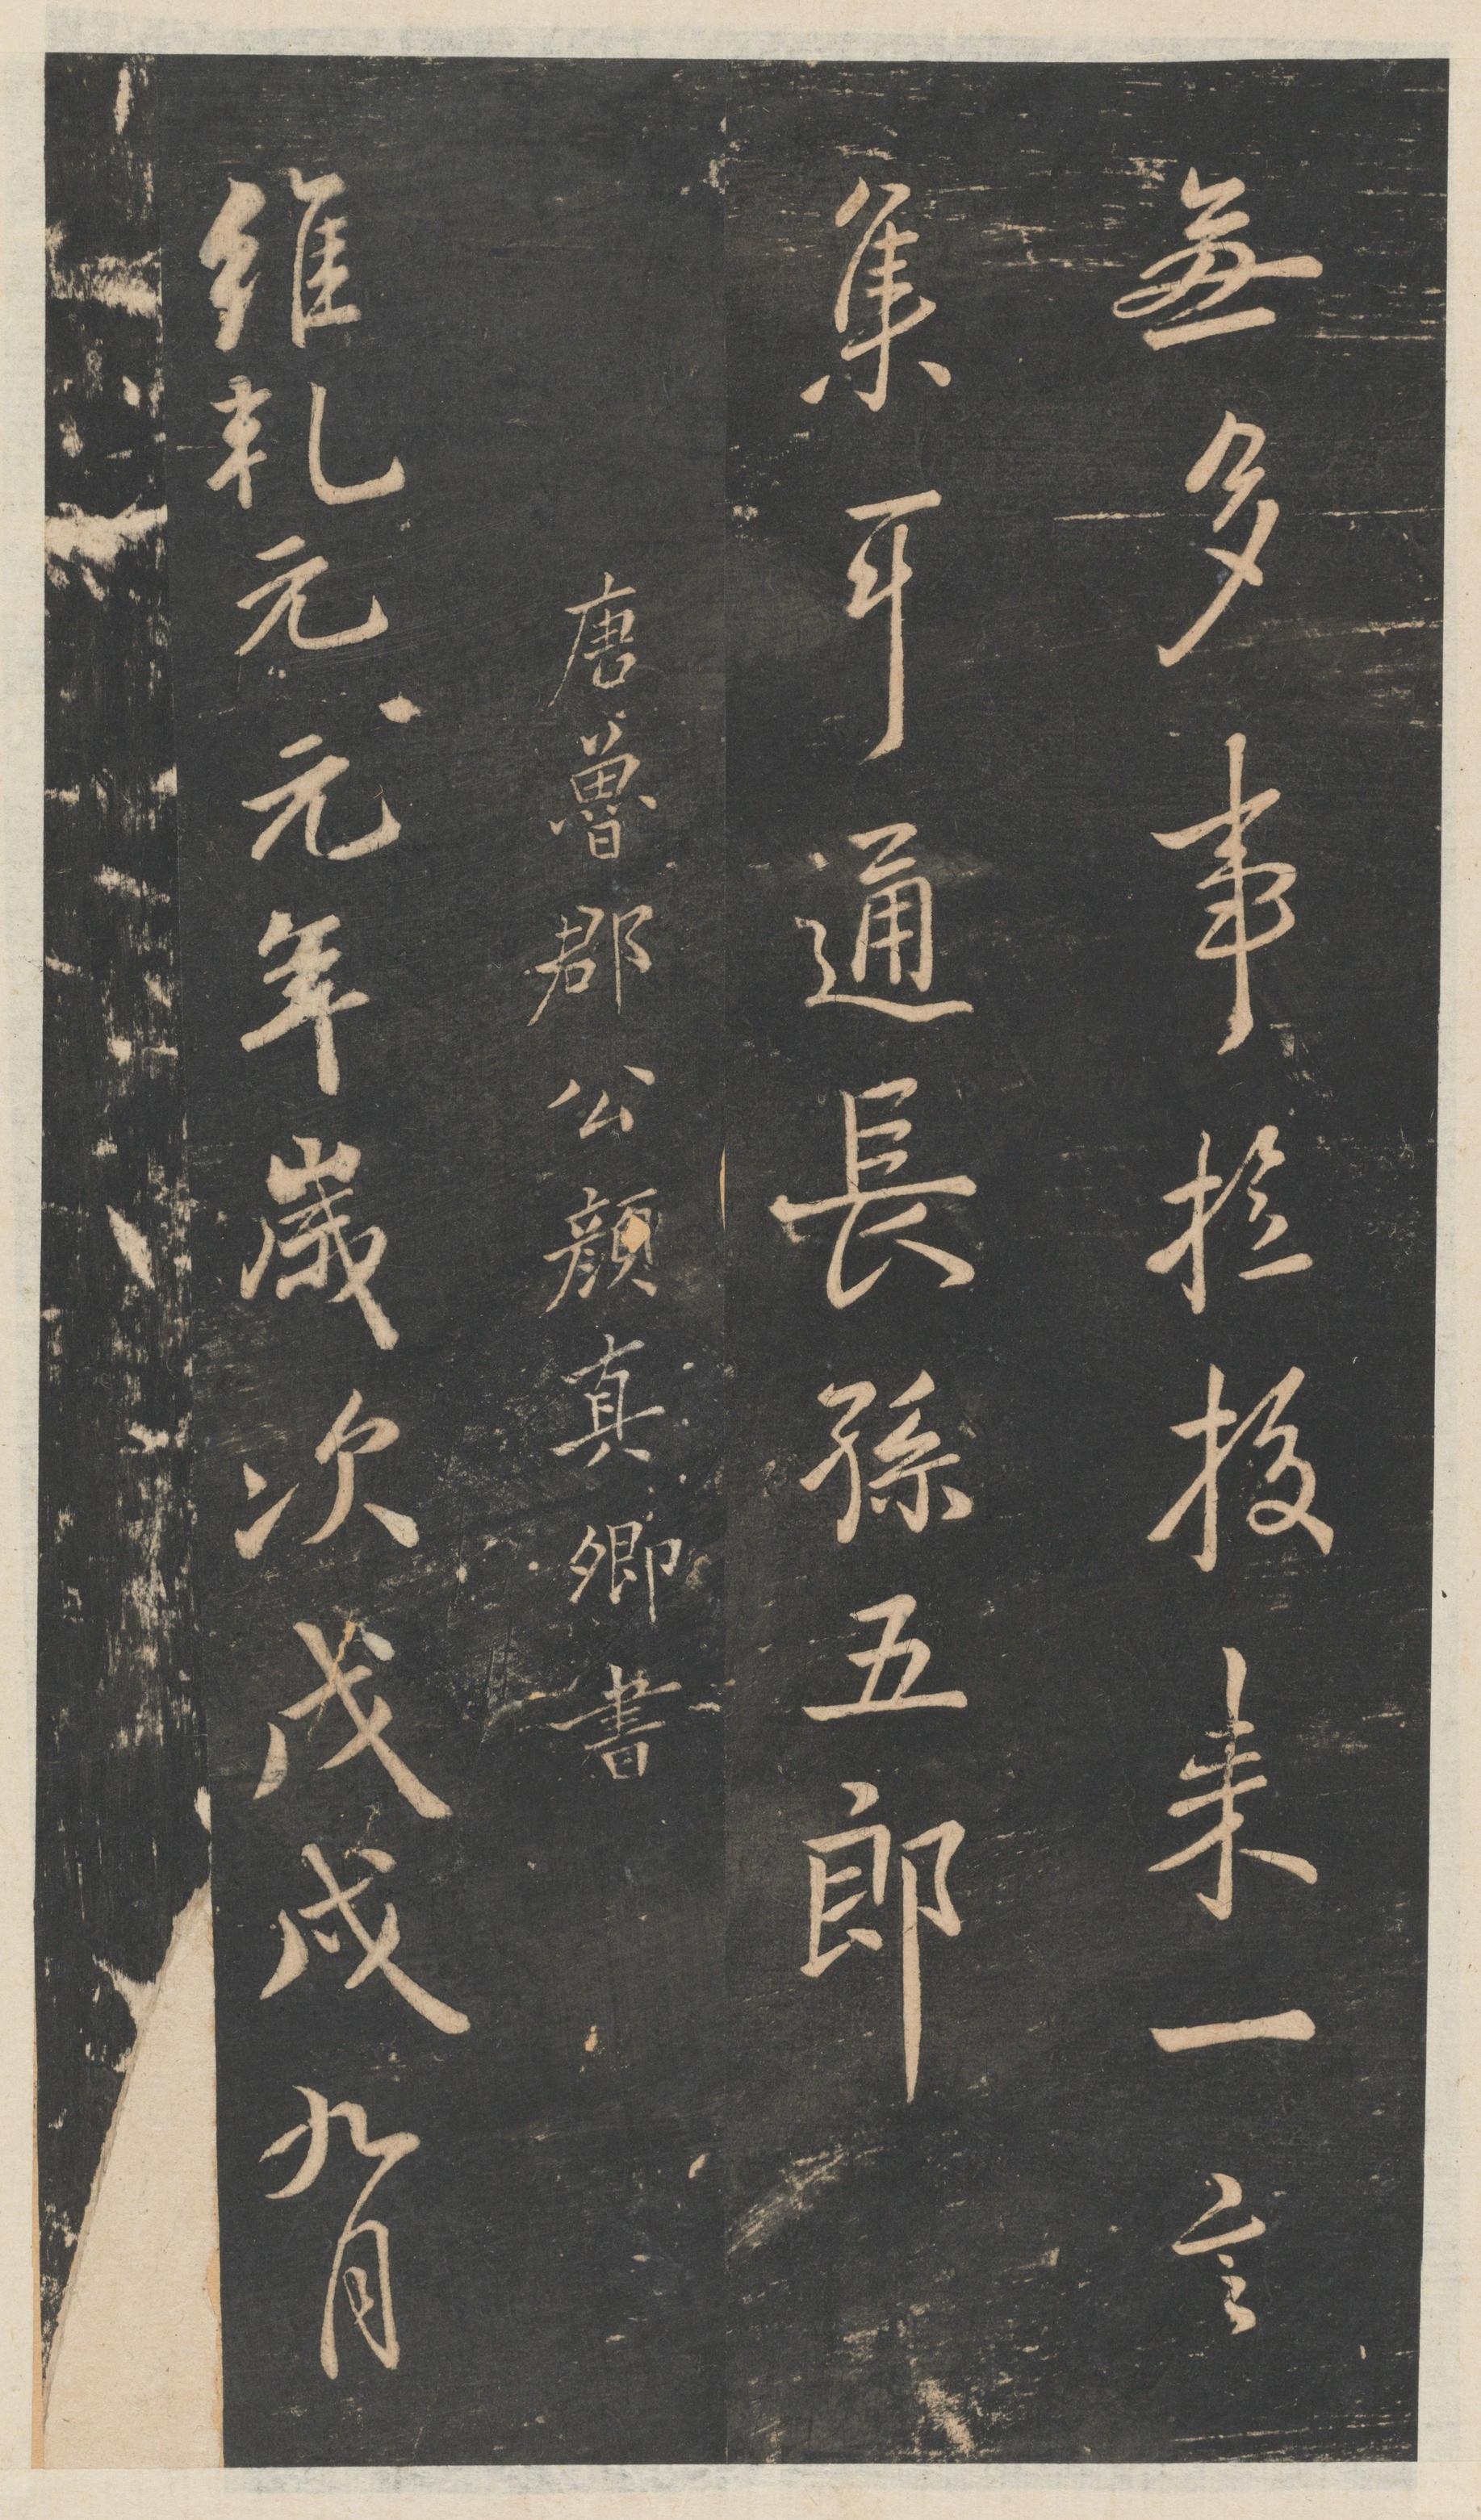 無多事㧡投来一言
集耳通長孫五郎
唐魯郡公顏真卿書
維乹元元年歲次戊戌九月